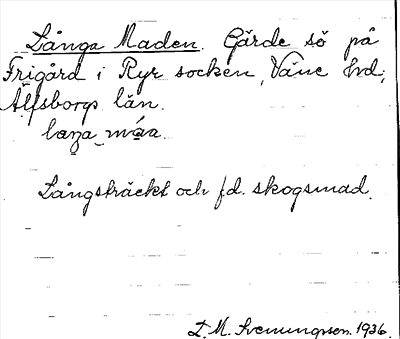 Långa Maden. Gärde sö på
Frigård i Ryr socken, Väne hrd,
Älfsborgs län.
Långsträckt och f.d. skogsmad.
L. M. Svenungsson. 1936.